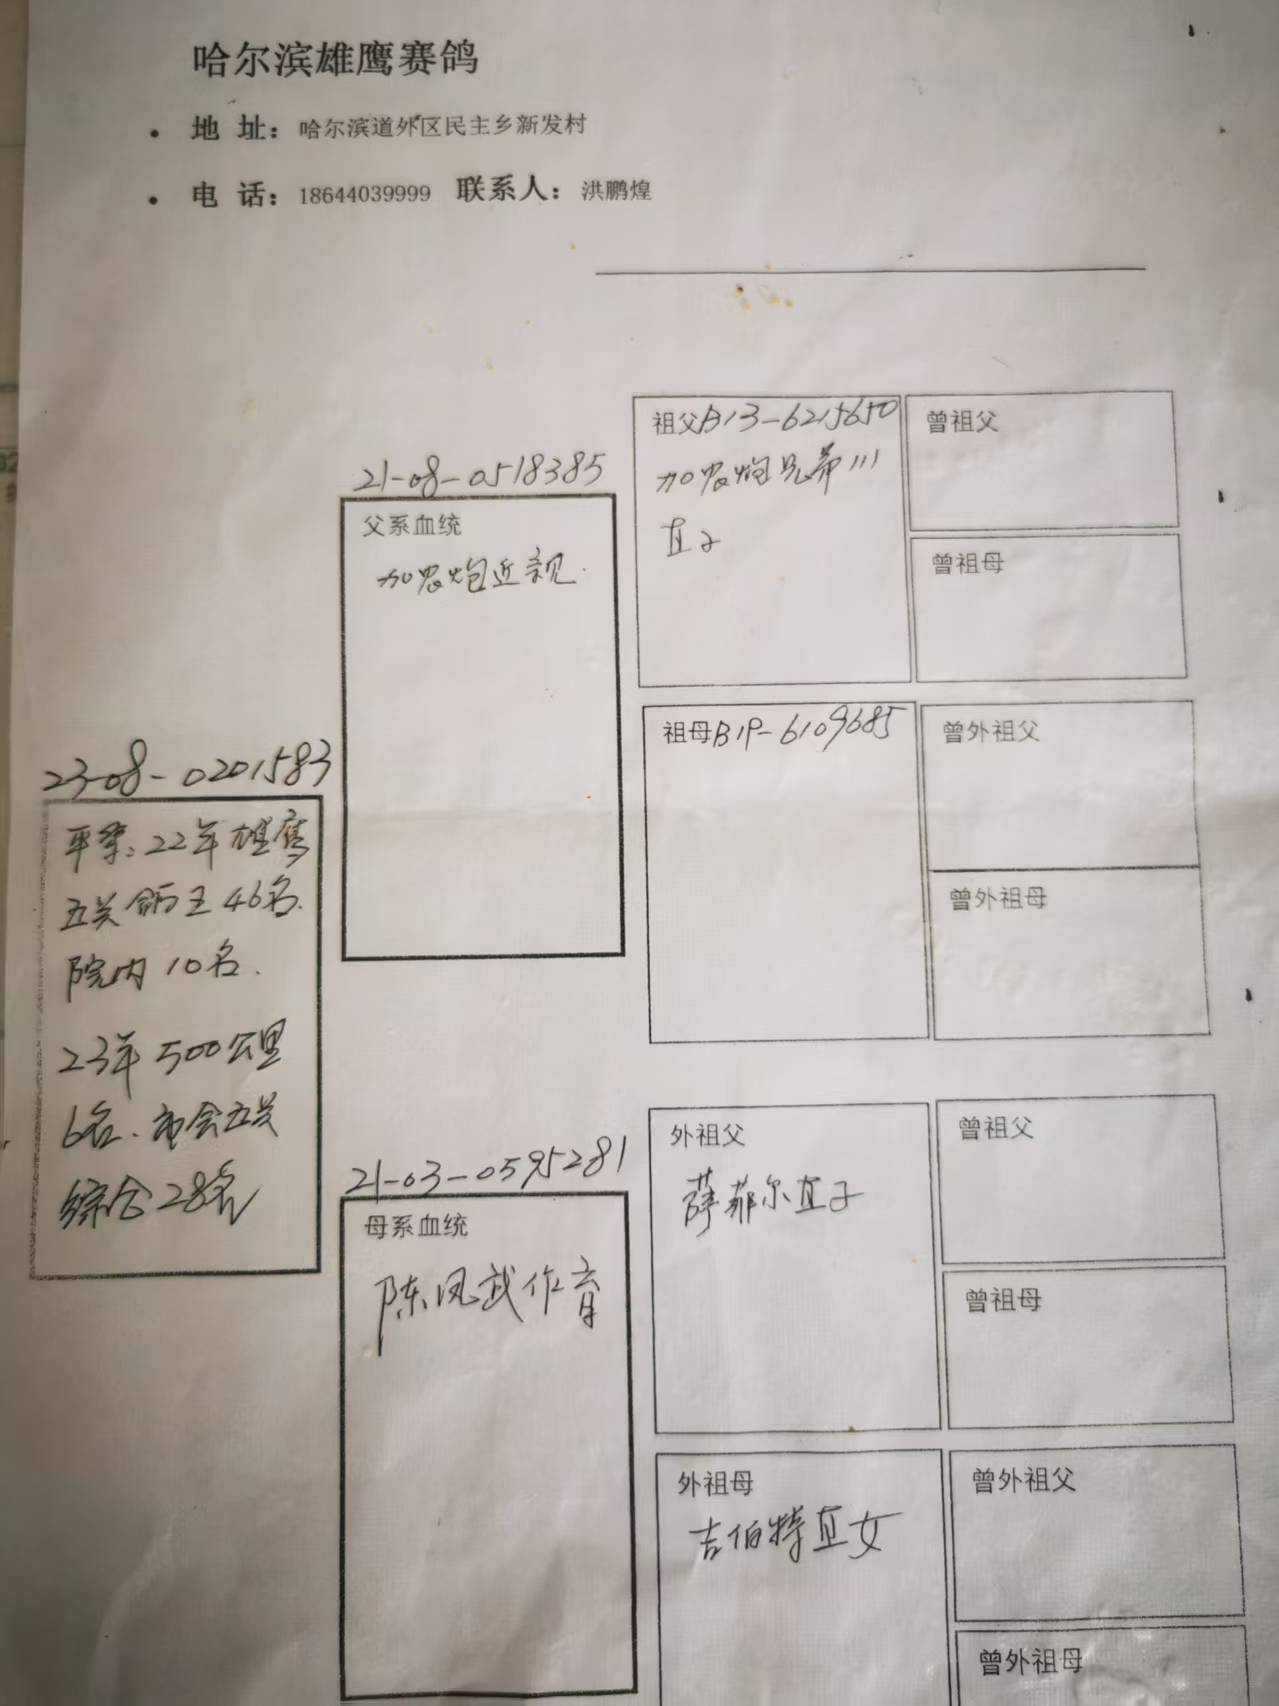 哈尔滨雄鹰赛鸽
• 地 址：哈尔滨道外区民主乡新发村
• 电 话：18644039999 联系人：洪鹏煌
23-08-0201583
平季:22年雄鹰
五关鸽王46名.
院内10名.
23年500公里
6名.市会五关
综合28名
21-08-0518385
父系血统
加农炮近亲.
21-03-0595281
母系血统
陈凤武作育
祖父B13-6215650
加农炮兄弟111
直子
祖母B19-6109685
外祖父
萨菲尔直子
外祖母
吉伯特直女
曾祖父
曾祖母
曾外祖父
曾外祖母
曾祖父
曾祖母
曾外祖父
曾外祖母